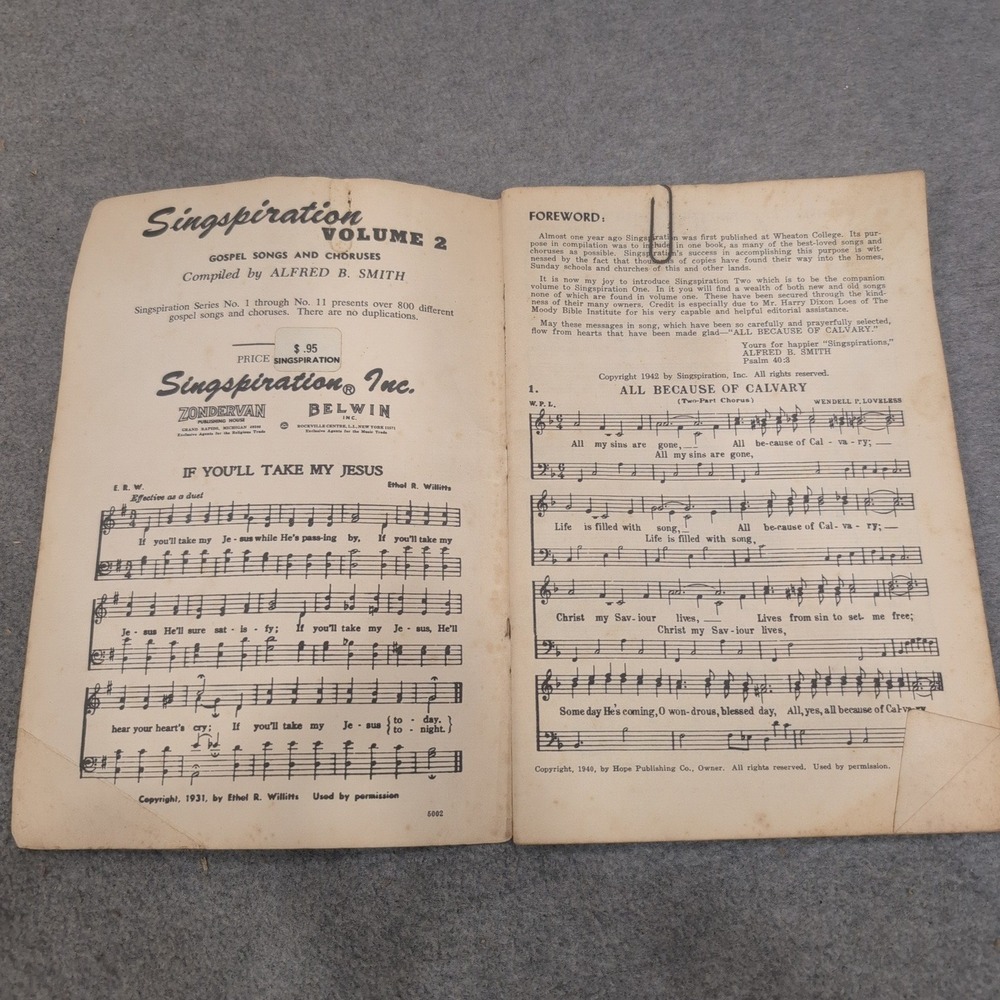 Singspiration
VOLUME 2
GOSPEL SONGS AND CHORUSES
Compiled by ALFRED B. SMITH
Singspiration Series No. 1 through No. 11 presents over 800 different
gospel songs and choruses. There are no duplications.
PRICE
$ .95
SINGSPIRATION
Singspiration® Inc.
ZONDERVAN
PUBLISHING HOUSE
GRAND RAPIDS, MICHIGAN
Exclusive Agents for the Religious Trade
BELWIN
INC.
ROCKVILLE CENTER, L.I., NEW YORK 11571
Exclusive Agents for the Music Trade
IF YOU'LL TAKE MY JESUS
E. R. W.
Ethel R. Willitts
Effective as a duet
If you'll take my Je - sus while He's pass-ing by, If you'll take my
Je - sus He'll sure sat - is - fy; If you'll take my Je - sus, He'll
hear your heart's cry; If you'll take my Je - sus { to - day. }
{ to - night. }
Copyright, 1931, by Ethel R. Willitts Used by permission
5002
FOREWORD:
Almost one year ago Singspiration was first published at Wheaton College. Its pur-
pose in compilation was to include in one book, as many of the best-loved songs and
choruses as possible. Singspiration's success in accomplishing this purpose is wit-
nessed by the fact that thousands of copies have found their way into the homes,
Sunday schools and churches of this and other lands.
It is now my joy to introduce Singspiration Two which is to be the companion
volume to Singspiration One. In it you will find a wealth of both new and old songs
none of which are found in volume one. These have been secured through the kind-
ness of their many owners. Credit is especially due to Mr. Harry Dixon Loes of The
Moody Bible Institute for his very capable and helpful editorial assistance.
May these messages in song, which have been so carefully and prayerfully selected,
flow from hearts that have been made glad—"ALL BECAUSE OF CALVARY."
Yours for happier "Singspirations,"
ALFRED B. SMITH
Psalm 40:3
Copyright 1942 by Singspiration, Inc. All rights reserved.
1. ALL BECAUSE OF CALVARY
W. P. L.
(Two-Part Chorus)
WENDELL P. LOVELESS
All my sins are gone, All be-cause of Cal - va - ry;
All my sins are gone,
Life is filled with song, All be-cause of Cal - va - ry;
Life is filled with song,
Christ my Sav-iour lives, Lives from sin to set me free;
Christ my Sav-iour lives,
Some day He's coming, O won-drous, blessed day, All, yes, all because of Cal-va-ry.
Copyright, 1940, by Hope Publishing Co., Owner. All rights reserved. Used by permission.